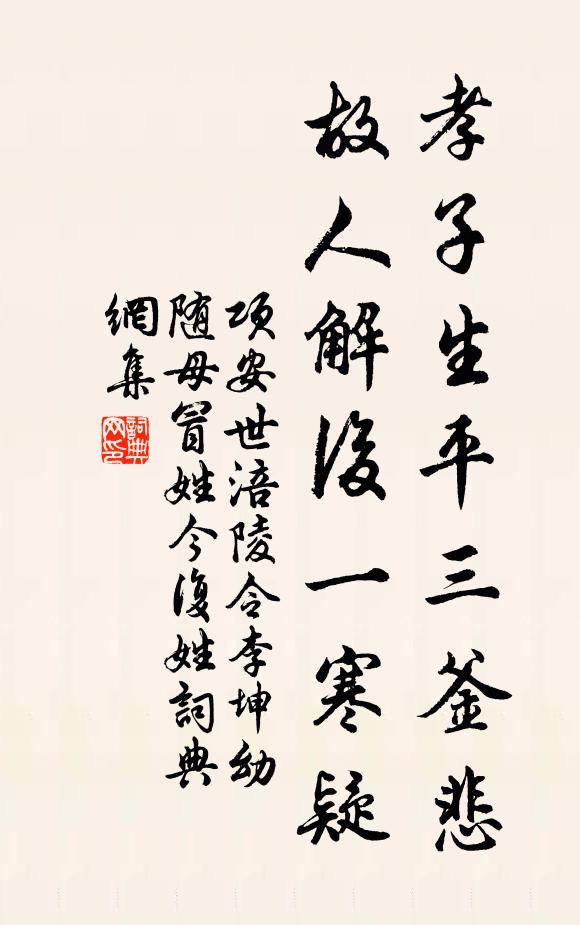 孝子生平三釜悲
故人解後一寒疑
項安世涪陵令李坤幼
随母冒姓今復姓詞典
網集
詞典
网印